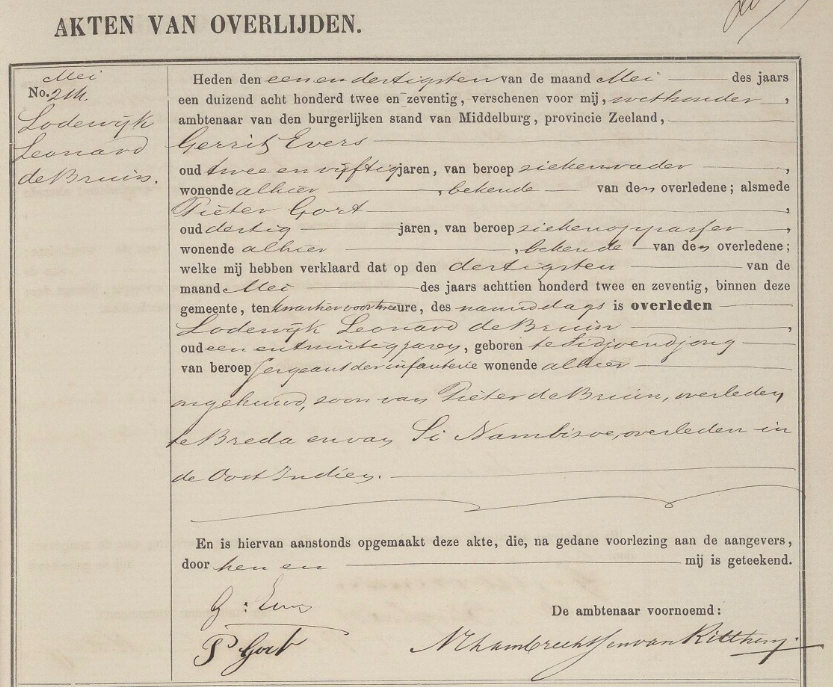 AKTEN VAN OVERLIJDEN.
Mei
No. 214.
Lodewijk
Leonard
de Bruin.
Heden den een en dertigsten van de maand Mei des jaars
een duizend acht honderd twee en zeventig, verschenen voor mij, wethouder,
ambtenaar van den burgerlijken stand van Middelburg, provincie Zeeland,
Gerrit Evers
oud twee en vijftig jaren, van beroep ziekenvader,
wonende alhier, bekende van den overledene; alsmede
Pieter Gort,
oud dertig jaren, van beroep ziekenoppasser,
wonende alhier, bekende van den overledene;
welke mij hebben verklaard dat op den dertigsten van de
maand Mei des jaars achttien honderd twee en zeventig, binnen deze
gemeente, ten kwartier voor twee ure, des namiddags is overleden
Lodewijk Leonard de Bruin,
oud een en twintig jaren, geboren te
van beroep sergeant der infanterie wonende alhier
ongehuwd, zoon van Pieter de Bruin, overleden
te Breda en van Si overleden in
de Oost Indien.
En is hiervan aanstonds opgemaakt deze akte, die, na gedane voorlezing aan de aangevers,
door hen en mij is geteekend.
G: Evers
De ambtenaar voornoemd:
P Gort